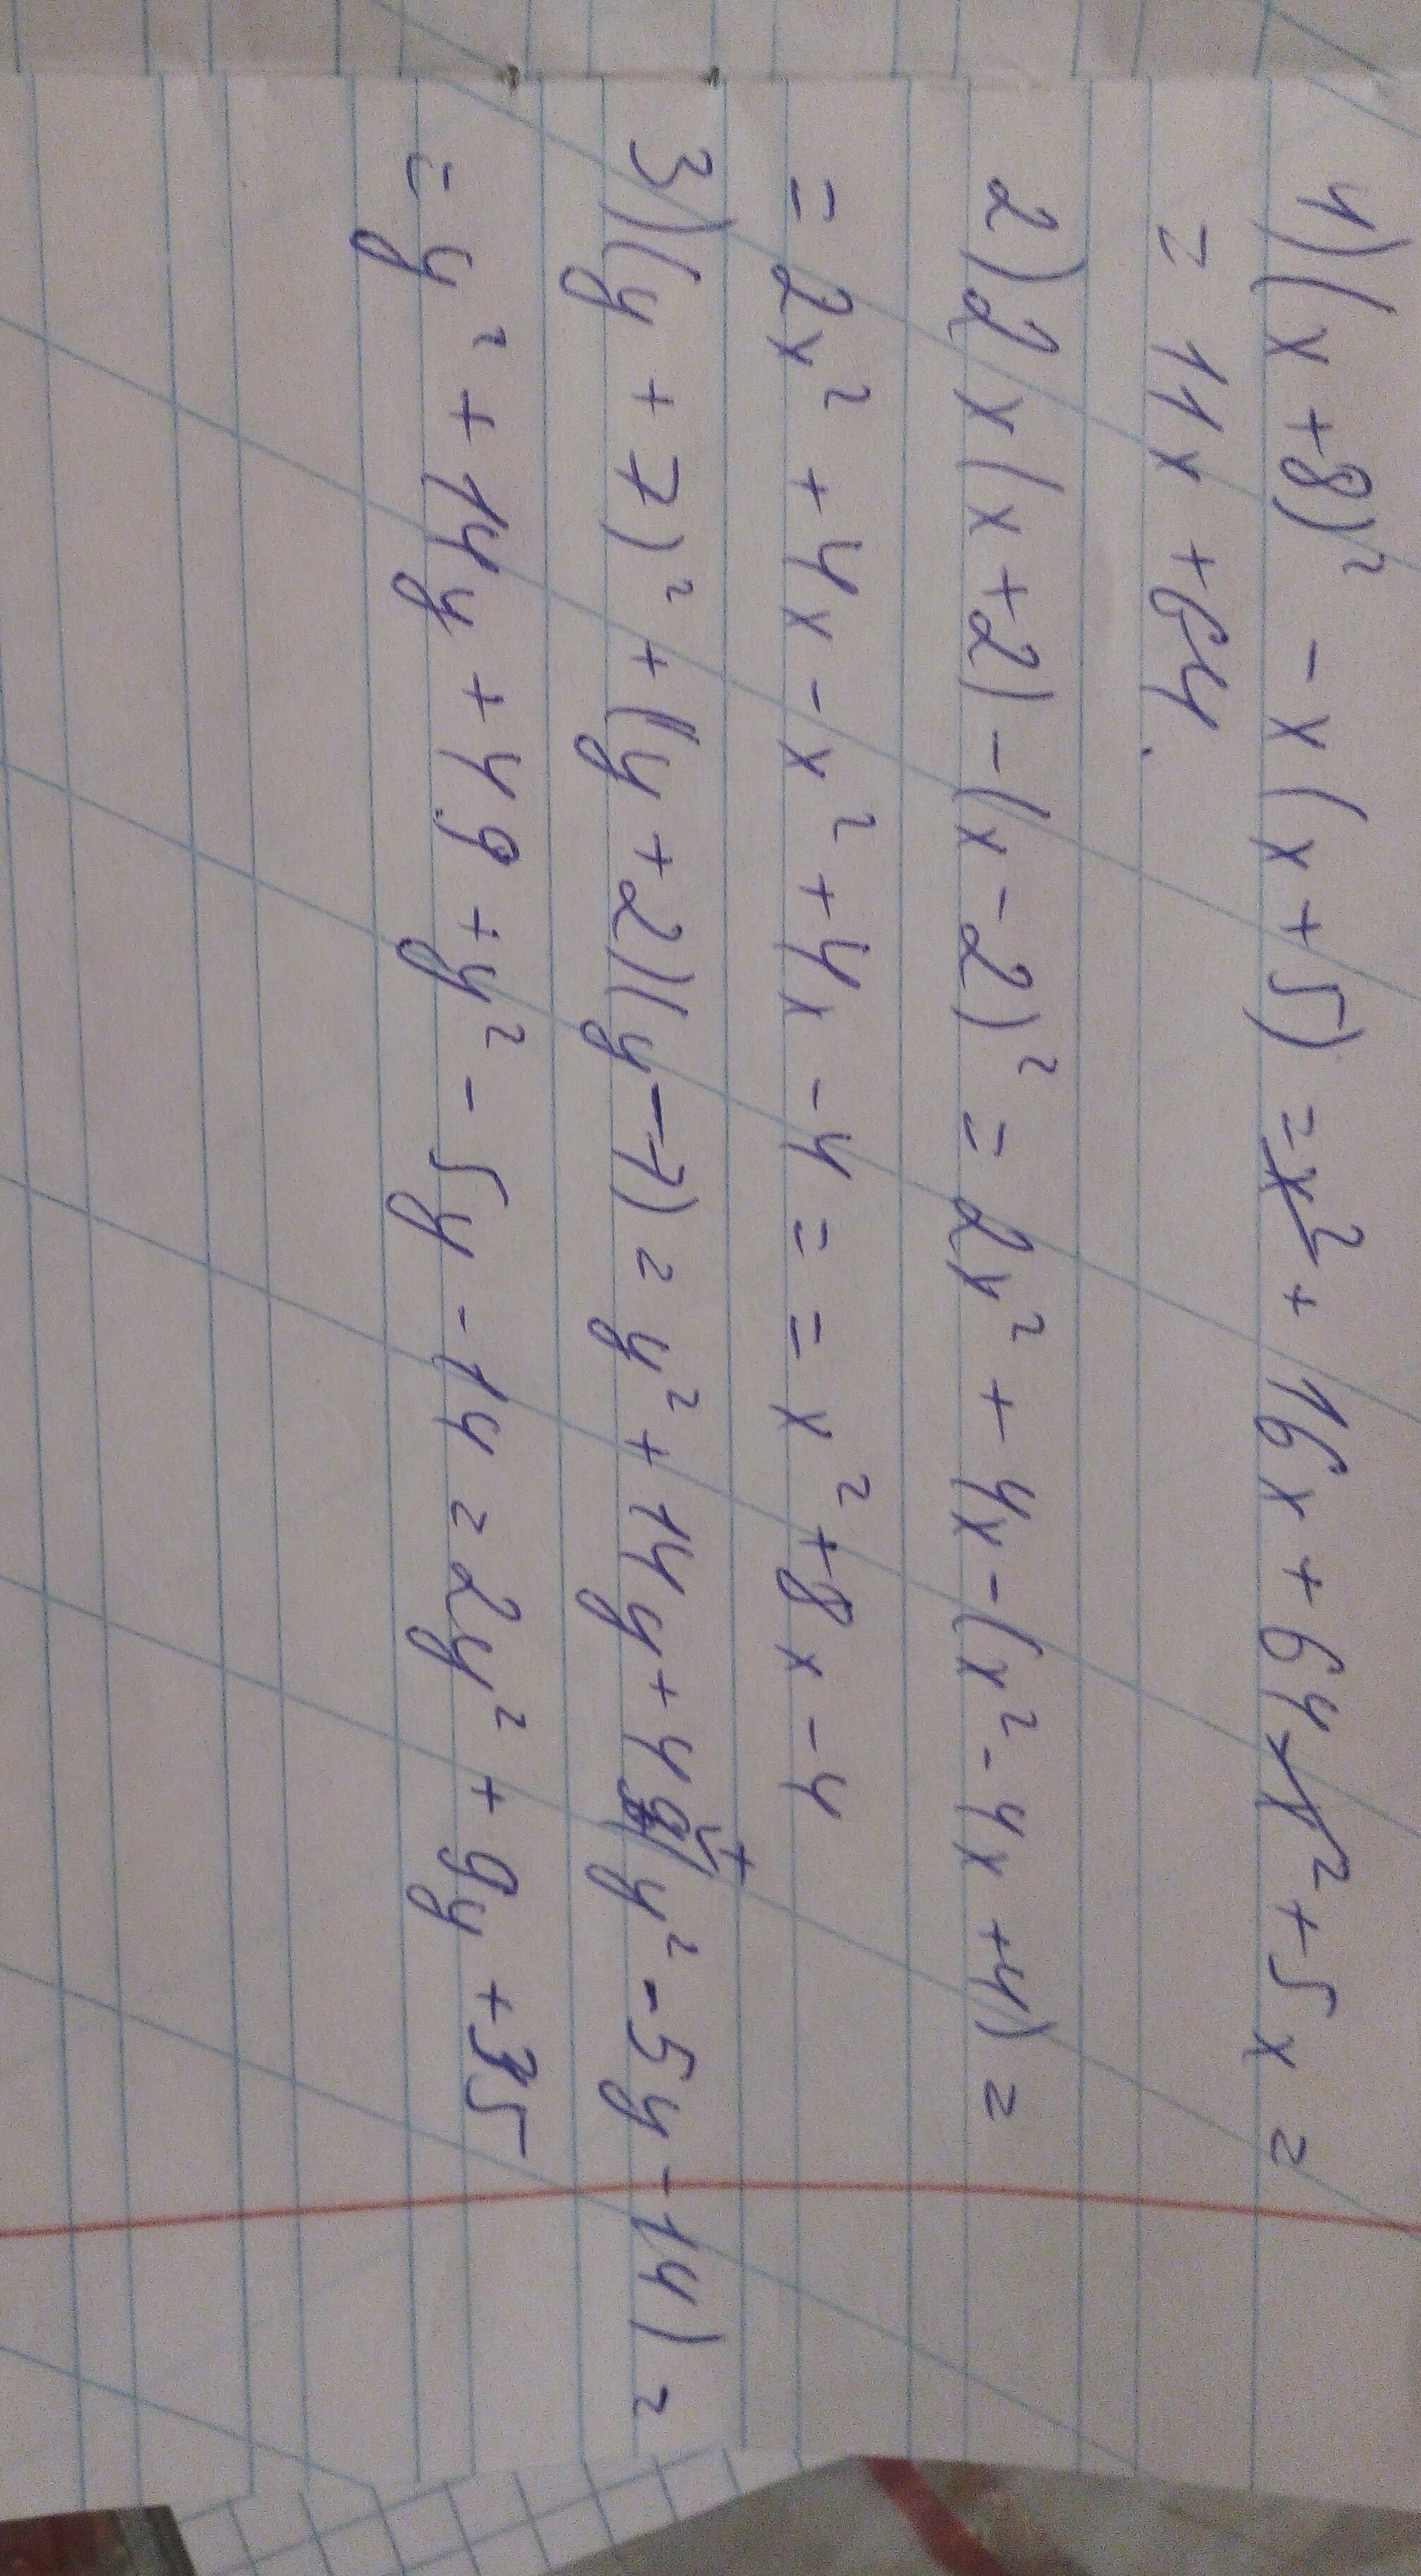 1) (x + 8)² - x(x + 5) = x² + 16x + 64 - x² + 5x =
= 11x + 64.
2) 2x(x + 2) - (x - 2)² = 2x² + 4x - (x² - 4x + 4) =
= 2x² + 4x - x² + 4x - 4 = = x² + 8x - 4
3) (y + 7)² + (y + 2)(y - 7) = y² + 14y + 49 + (y² - 5y - 14) =
= y² + 14y + 49 + y² - 5y - 14 = 2y² + 9y + 35